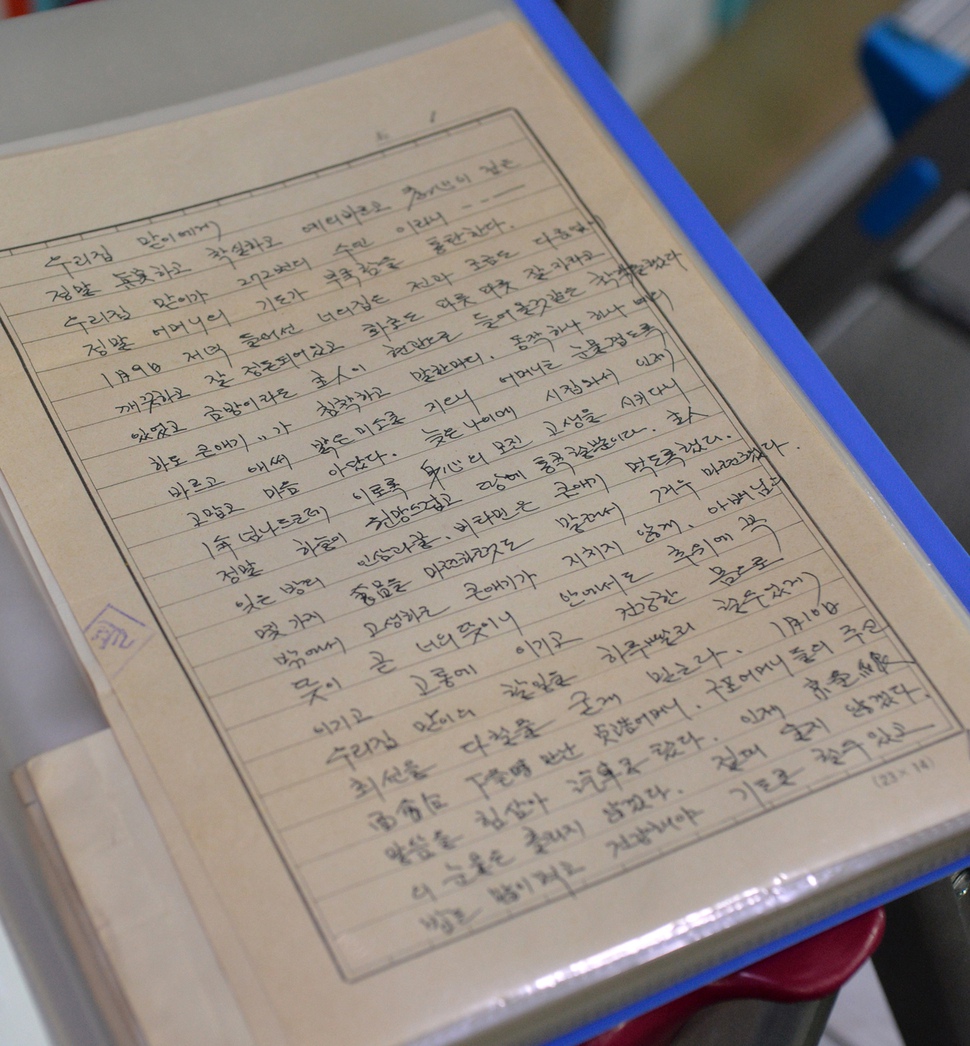 우리집 맏이에게)
정말 眞実하고 착실하고 예의바르고 孝心이 깊은
우리집 맏이가 272번의 수인 이라니 ---
정말 어머니의 기도가 부족함을 통탄한다.
1月9日 저녁 들어선 너의집은 전화 조금도 다름없
깨끗하고 잘 정돈되어있고 화초도 파릇 파릇 잘 자라고
있었고 금방이라도 主人이 현관으로 들어올것같은
하도 큰애기 〃가 침착하고 말한마디. 동작하나 하나
바르고 애써 밝은 미소를 지으니 어머니는 눈물겹도록
고맙고 마음 아팠다. 늦은 나이에 시집와서 인제
1年 넘나드는데 이토록 身心의 모진 고생을 시키다니
정말 하늘이 원망스럽고 땅에 통곡 하뿐이라. 主人
잊은 방의 인삼과 꿀. 비타민은 큰애기 먹도록했다.
몇 가지 食品을 마련하려해도 말려서 겨우 마련했다.
밖에서 고생하는 큰애기가 지치지 않게. 아버님
뜻이 곧 너의 뜻이니 안에서도 추위에 꼭
이기고 고통에 이기고 건강한 몸으로
우리집 맏이의 할일을 하루빨리 할수있게)
최선을 다할줄 굳게 믿는다. 1月10日
面會하 만난 어머니. 구로어머니 들의 주신
말씀을 힘삼아 汽車를 탔다. 인제
의 눈물은 흘리지 않겠다. 절대 울지 않겠다.
밥도 많이 먹고 건강해야 기도로 할수있고
(23×14)